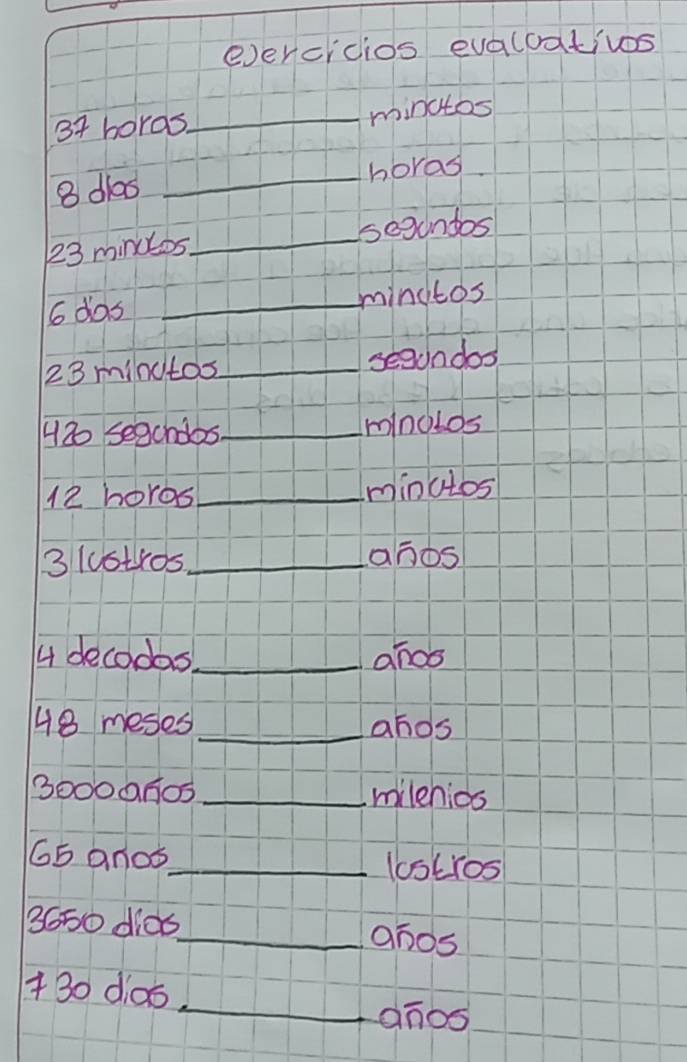 ejercicios evaluativos
37 horas______minutos
8 dias______horas
23 minutos______segundos
6 dias______minutos
23 minutos______segundos
420 segundos______minutos
12 horas______minutos
3 lustros______años
4 decadas______años
48 meses______años
3000 años______milenios
65 anos______lustros
3650 dias______años
730 dias______años